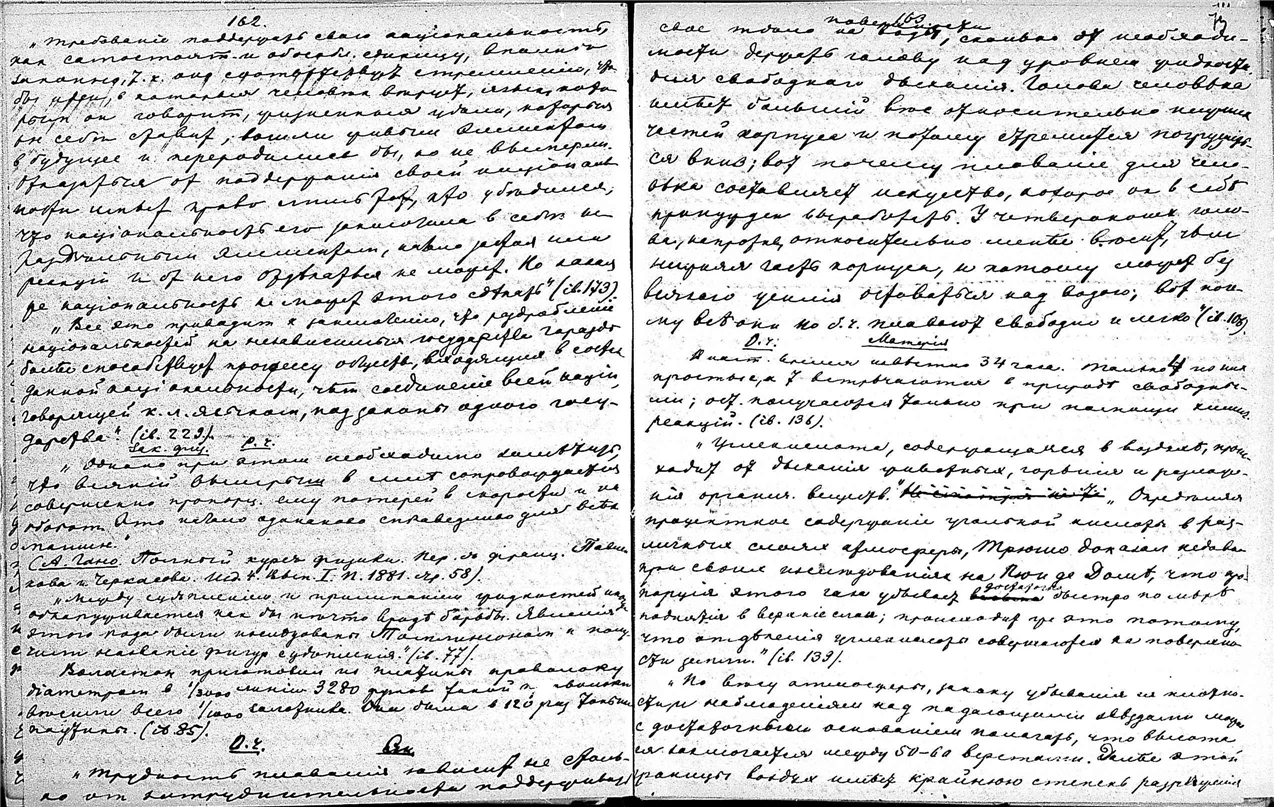 162.
„Требованіе поддержать свою національность,
как самостоят. и обособл. единицу, вполнѣ
законно, т. к. оно соотвѣтствует стремленію, что
бы идеи, в которыя человѣк вѣрует, язык, кото
рым он говорит, жизненныя цѣли, которыя
он себѣ ставит, вошли живым элементом
в будущее и переродились бы, но не вымерли.
Отказаться от поддержанія своей національ
ности имѣет право лишь тот, кто убѣдился,
что національность его заключала в себѣ не
раздѣльным элементом, начало застоя или
реакціи и от него отдѣлаться не может. Но какая
же національность не может этого сдѣлать" (ib. 173)
„Все это приводит к заключенію, что раздробленіе
національностей на независимыя государства гораздо
болѣе способствует прогрессу обществ, входящих в состав
данной національности, чѣм соединеніе всей націи,
говорящей к. л. языком, под законы одного госу-
дарства". (ib. 229).
Зак. физ. О. ч.
„Однако при этом необходимо замѣтить,
что всякій выигрыш в силѣ сопровождается
совершенно пропорц. ему потерей в скорости и на
оборот. Это начало одинаково справедливо для всѣх
машин."
(А. Гано. Полный курс физики. Пер. с франц. Павлен
кова и Черкасова. Изд. 4. Вып. I. П. 1881. стр. 58).
„Между сцѣпленіем и прилипаніем жидкостей
обнаруживается как бы нѣчто вродѣ борьбы. Явленія
этого рода были изслѣдованы Томлинсоном и полу
чили названіе фигур сцѣпленія." (ib. 77).
Воластон приготовил из платины проволоку
діаметром в 1/3000 линіи 3280 футов такой проволоки
вѣсили всего 1/1000 золотника. Она была в 120 раз тоньше
паутины. (ib 85).
О. ч.
„Трудность плаванія зависит не столь-
ко от затруднительности поддерживать
163
73
поверхности
свое тѣло на воды, сколько от необходи-
мости держать голову над уровнем жидкости
для свободнаго дыханія. Голова человѣка
имѣет большій вѣс относительно нижних
частей корпуса и потому стремится погрузить
ся вниз; вот почему плаваніе для чело
вѣка составляет искусство, которое он в себѣ
принужден выработать. У четвероногих голо-
ва, напротив, относительно менѣе вѣсит, чѣм
нижняя часть корпуса, и потому может без
всякаго усилія оставаться над водою; вот поче
му всѣ они по б. ч. плавают свободно и легко" (ib. 106).
О. ч. Матерія
В наст. время извѣстно 34 газа. Только 4 из них
простые, а 7 встрѣчаются в природѣ свободны-
ми; ост. получаются только при помощи химич.
реакцій. (ib. 136).
„Углекислота, содержащаяся в воздухѣ, проис
ходит от дыханія животных, горѣнія и разложе-
нія органич. веществ." „Опредѣляя
процентное содержаніе угольной кислоты в раз-
личных слоях атмосферы, Трюшо доказал недавно
при своих изслѣдованіях на Пюи де Домѣ, что про
порція этого газа убывает довольно быстро по мѣрѣ
поднятія в верхніе слои; происходит же это потому,
что отдѣленія углекислоты совершаются на поверхно-
сти земли." (ib. 139).
„По вѣсу атмосферы, закону убыванія ея плотно-
сти и наблюденіям над падающими звѣздами можно
с достаточным основаніем полагать, что высота
ея заключается между 50-60 верстами. Далѣе этой
границы воздух имѣет крайнюю степень разрѣженія